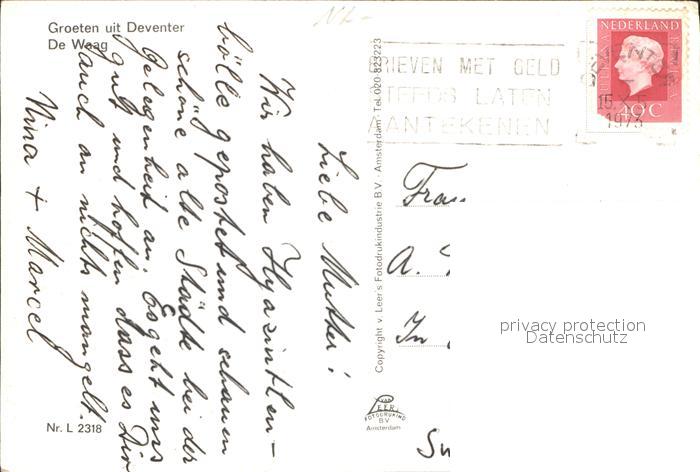 Groeten uit Deventer
De Waag
NEDERLAND
40 C
BRIEVEN MET GELD
STEEDS LATEN
AANTEKENEN
DEVENTER
15.X
1973
Liebe Mutter!
Wir haben Hyazinthen-
bölle gepostet und schauen
schöne alte Städte bei der
Gelegenheit an. Es geht uns
gut und hoffen dass es Dir
auch an nichts mangelt.
Nina + Marcel
Copyright v. Leer's Fotodrukindustrie B.V. - Amsterdam - Tel. 020-823223
Frau
A.
In
VAN LEER
FOTODRUKIND
BV
Amsterdam
Nr. L 2318
privacy protection
Datenschutz